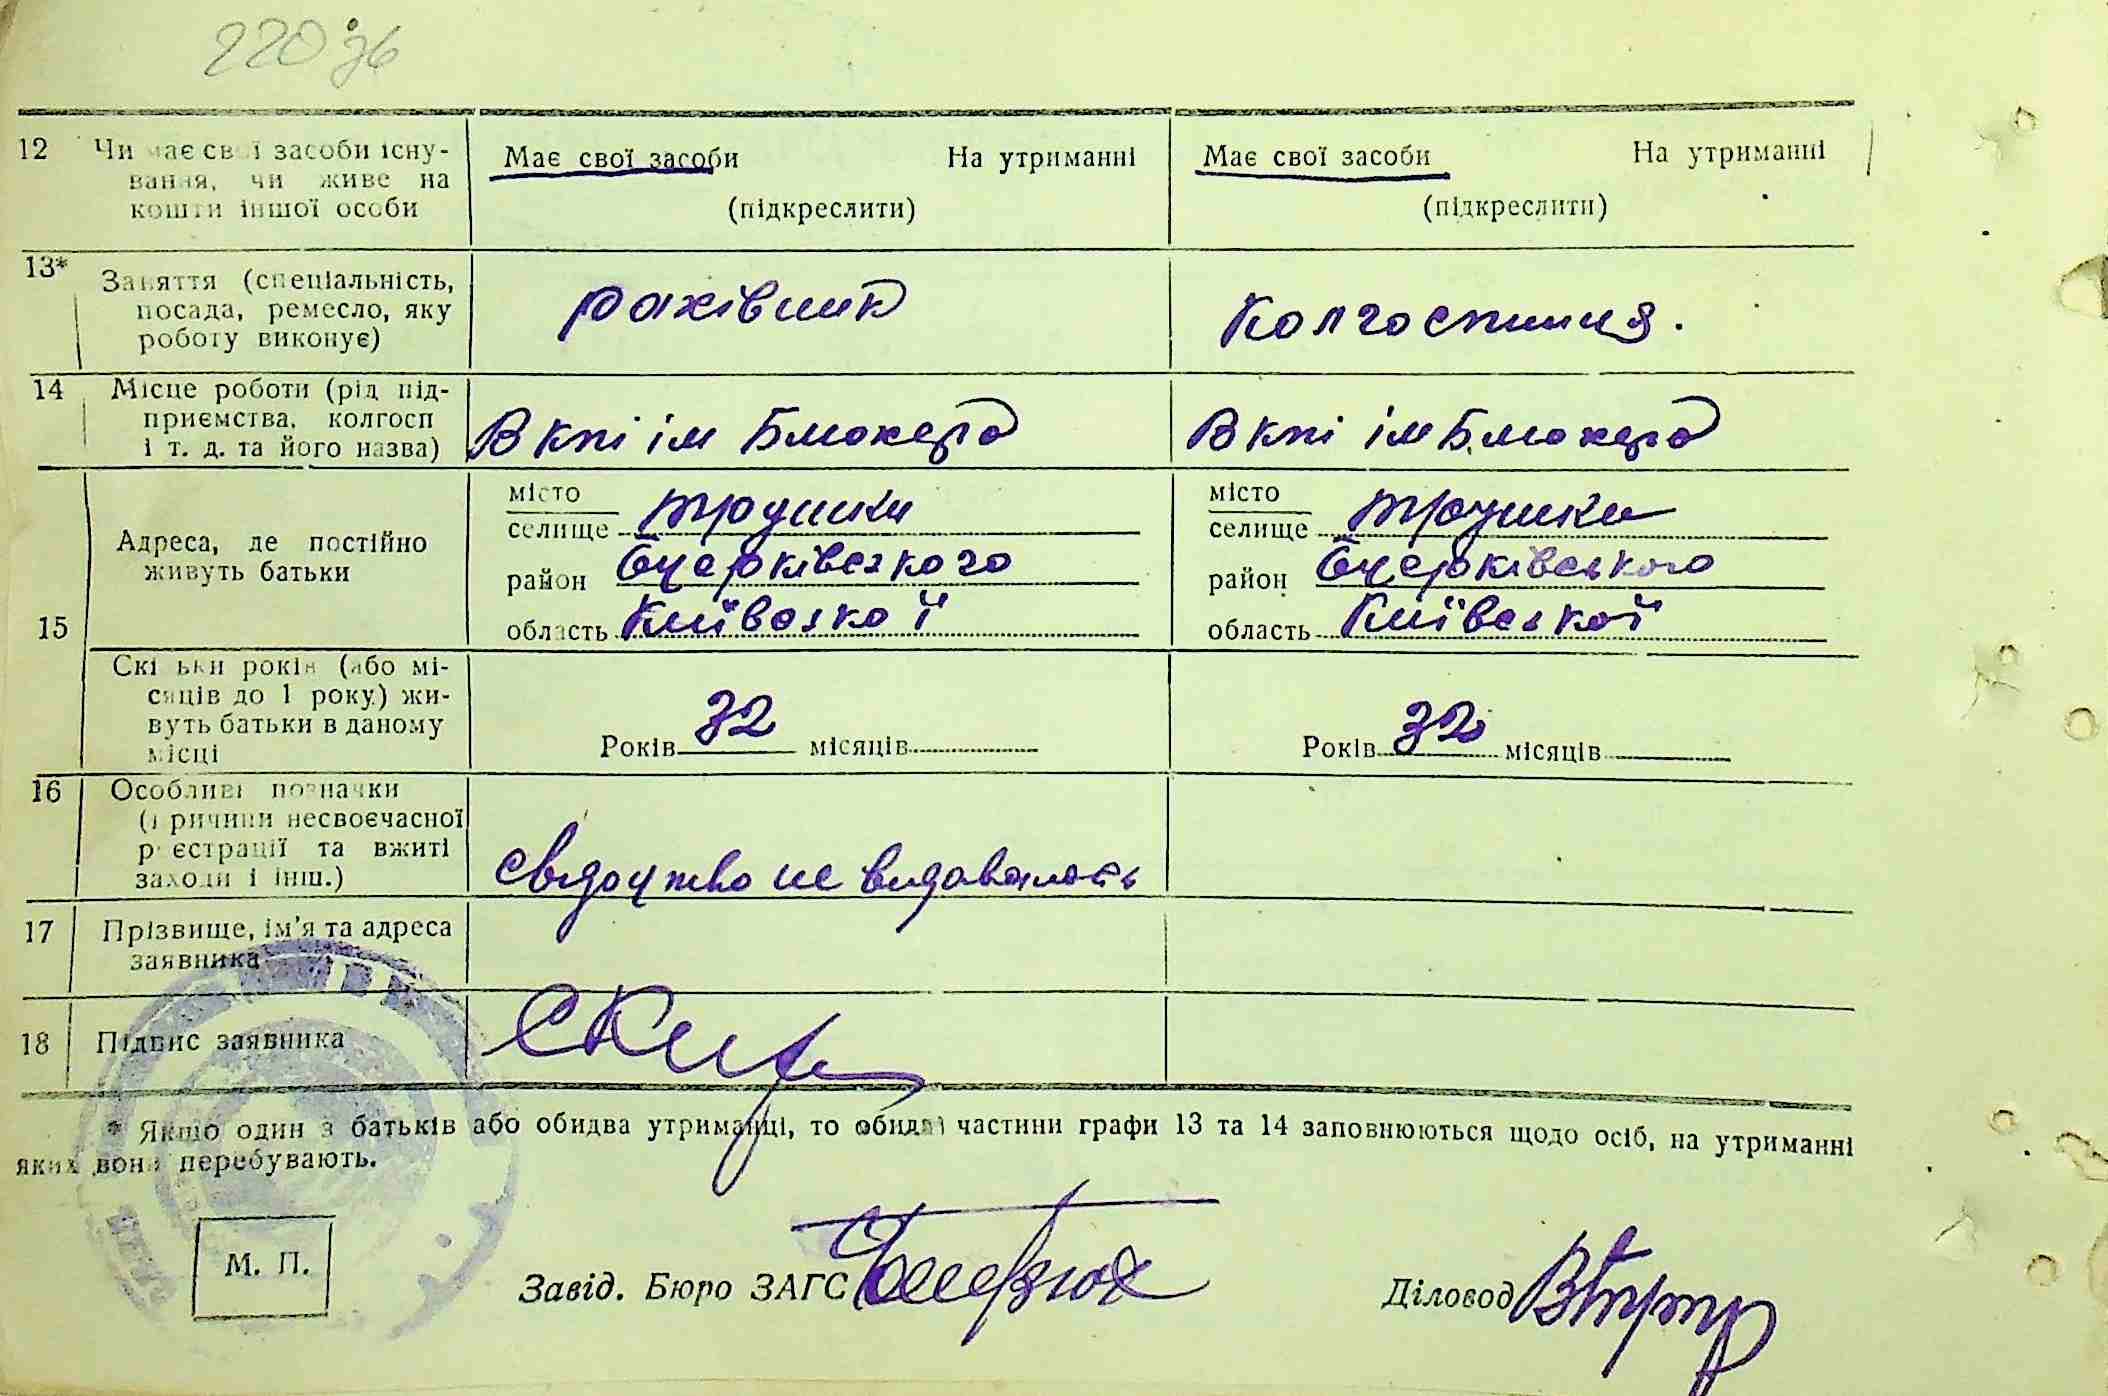 220 зв
12 Чи має свої засоби існу- Має свої засоби На утриманні Має свої засоби На утриманні
вання, чи живе на
кошти іншої особи (підкреслити) (підкреслити)
13* Заняття (спеціальність, рахівник Колгоспниця.
посада, ремесло, яку
роботу виконує)
14 Місце роботи (рід під-
приємства, колгосп В кпі ім Блюхера В кпі ім Блюхера
і т. д. та його назва)
15 Адреса, де постійно
живуть батьки
місто місто
селище Трушки селище Трушки
район Бцерківського район Бцерківського
область Київської область Київської
Скільки років (або мі-
сяців до 1 року) жи-
вуть батьки в даному
місці Років 32 місяців Років 32 місяців
16 Особливі позначки
(причини несвоєчасної
реєстрації та вжиті
заходи і інш.) свідоцтво не видавалось
17 Прізвище, ім'я та адреса
заявника
18 Підпис заявника
* Якщо один з батьків або обидва утриманці, то обидві частини графи 13 та 14 заповнюються щодо осіб, на утриманні
яких вони перебувають.
М. П.
Завід. Бюро ЗАГС Діловод